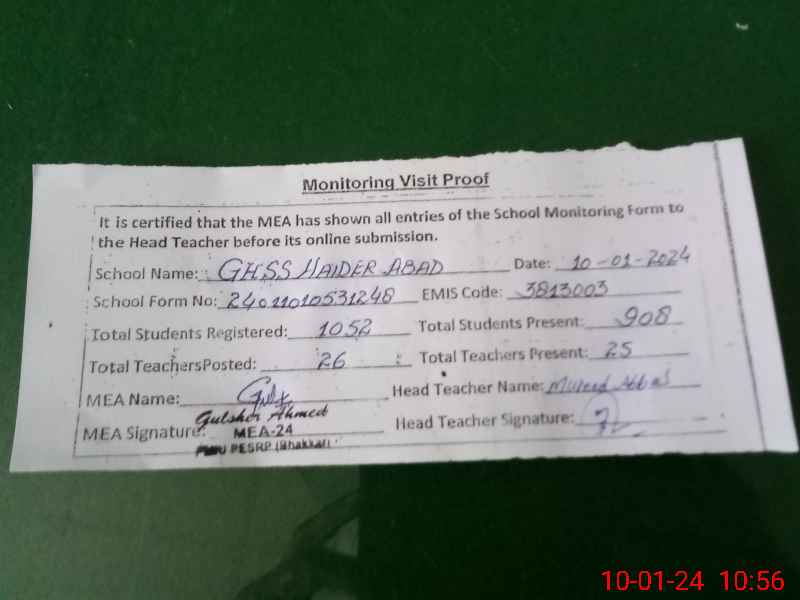 Monitoring Visit Proof
It is certified that the MEA has shown all entries of the School Monitoring Form to
the Head Teacher before its online submission.
School Name: GHSS HAIDER ABAD Date: 10-01-2024
School Form No: 24011010531248 EMIS Code: 3813003
Total Students Registered: 1052 Total Students Present: 908
Total TeachersPosted: 26 Total Teachers Present: 25
MEA Name: Head Teacher Name: Abbas
Gulsher Ahmed
MEA Signature: MEA-24 Head Teacher Signature:
PESRP (Bhakkar)
10-01-24 10:56